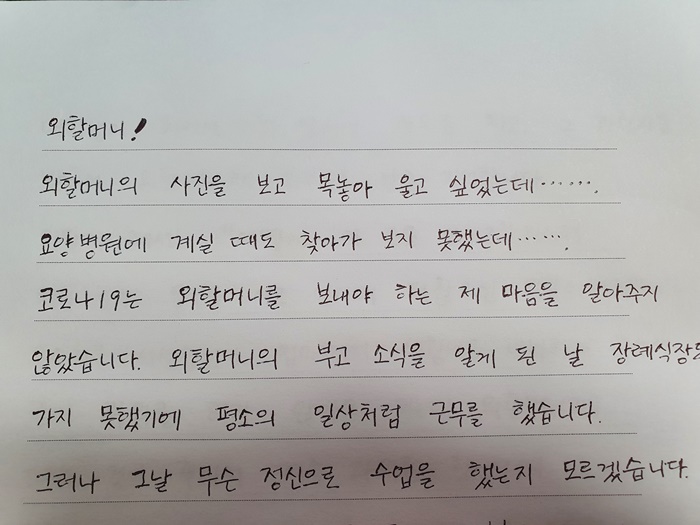 외할머니!
외할머니의 사진을 보고 목놓아 울고 싶었는데…….
요양병원에 계실 때도 찾아가 보지 못했는데…….
코로나19는 외할머니를 보내야 하는 제 마음을 알아주지
않았습니다. 외할머니의 부고 소식을 알게 된 날 장례식장도
가지 못했기에 평소의 일상처럼 근무를 했습니다.
그러나 그날 무슨 정신으로 수업을 했는지 모르겠습니다.